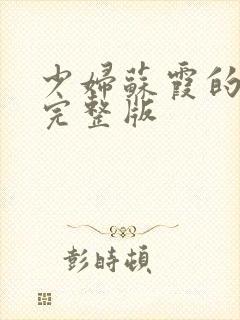 少婦蘇霞的
完整版
彭時頓